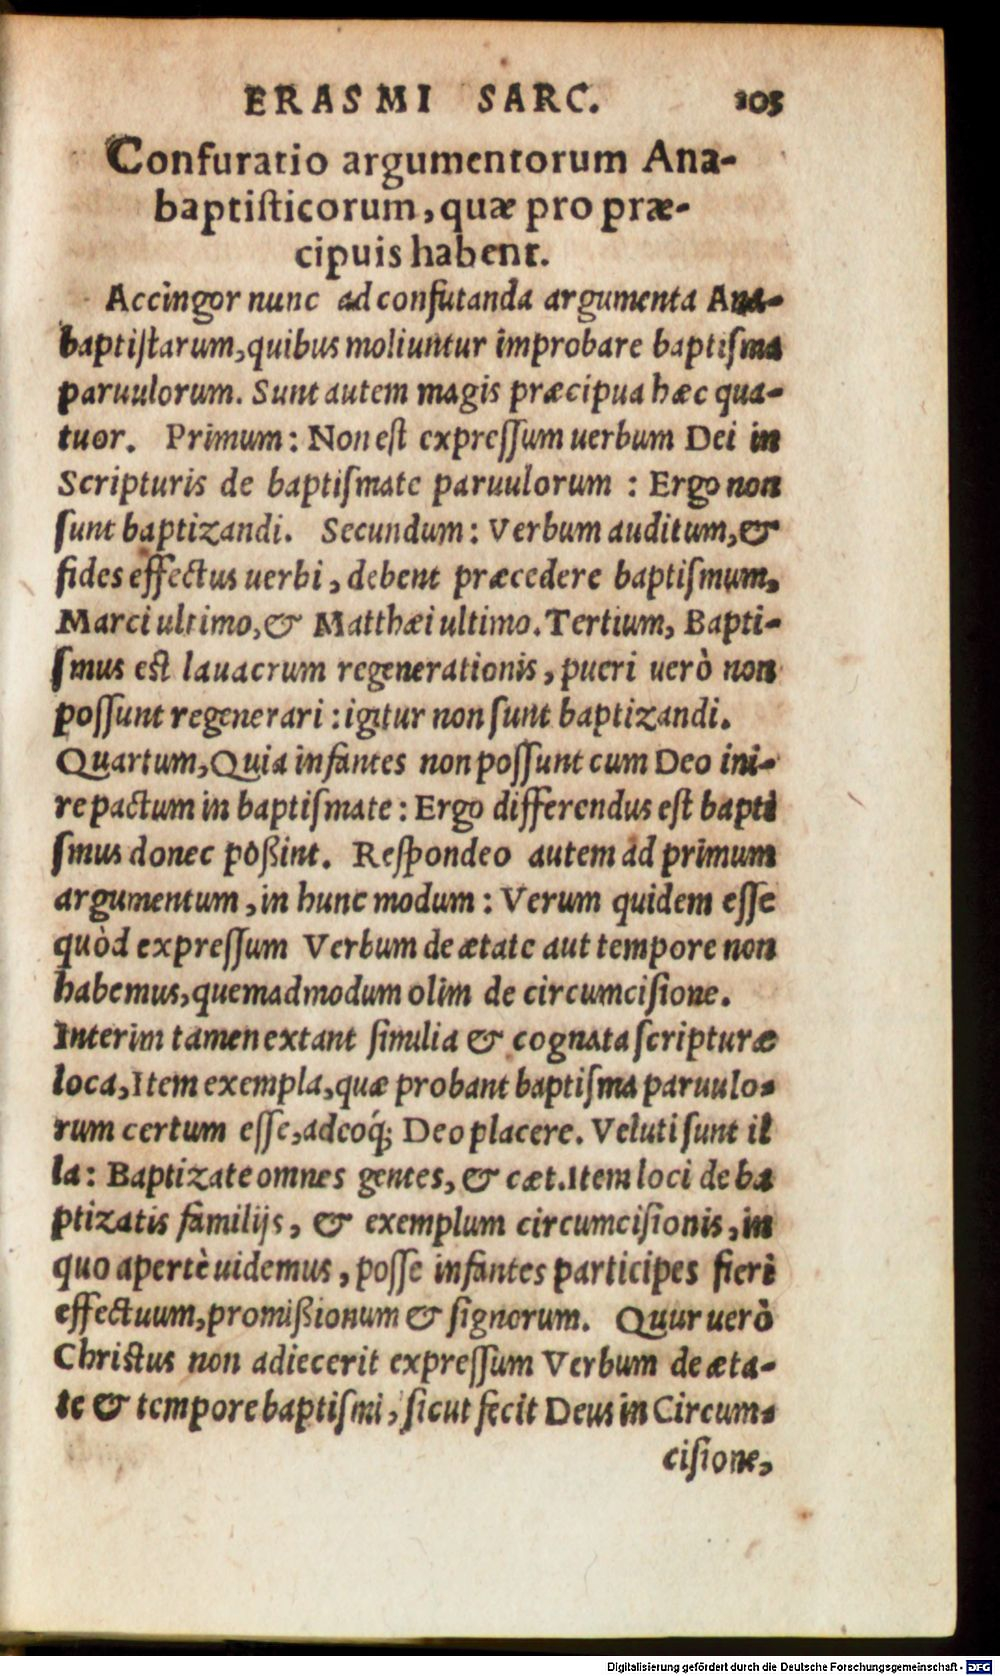 ERASMI SARC. 105
Confutatio argumentorum Ana-
baptiſticorum, quæ pro præ-
cipuis habent.
Accingor nunc ad confutanda argumenta Ana-
baptiſtarum, quibus moliuntur improbare baptiſma
paruulorum. Sunt autem magis præcipua hæc qua-
tuor. Primum: Non eſt expreſſum uerbum Dei in
Scripturis de baptiſmate paruulorum : Ergo non
ſunt baptizandi. Secundum: Verbum auditum, &
fides effectus uerbi, debent præcedere baptiſmum,
Marci ultimo, & Matthæi ultimo. Tertium, Bapti-
ſmus est lauacrum regenerationis, pueri uerò non
poſſunt regenerari : igitur non ſunt baptizandi.
Quartum, Quia infantes non poſſunt cum Deo ini-
re pactum in baptiſmate : Ergo differendus eſt bapti
ſmus donec poßint. Reſpondeo autem ad primum
argumentum, in hunc modum : Verum quidem eſſe
quòd expreſſum Verbum de ætate aut tempore non
habemus, quemadmodum olim de circumciſione.
Interim tamen extant ſimilia & cognata ſcripturæ
loca, Item exempla, quæ probant baptiſma paruulo-
rum certum eſſe, adeoq́; Deo placere. Veluti ſunt il
la: Baptizate omnes gentes, & cæt. Item loci de ba
ptizatis familijs, & exemplum circumciſionis, in
quo apertè uidemus, poſſe infantes participes fieri
effectuum, promißionum & ſignorum. Quur uerò
Chriſtus non adiecerit expreſſum Verbum de æta-
te & tempore baptiſmi, ſicut fecit Deus in Circum-
ciſione,
Digitalisierung gefördert durch die Deutsche Forschungsgemeinschaft - DFG